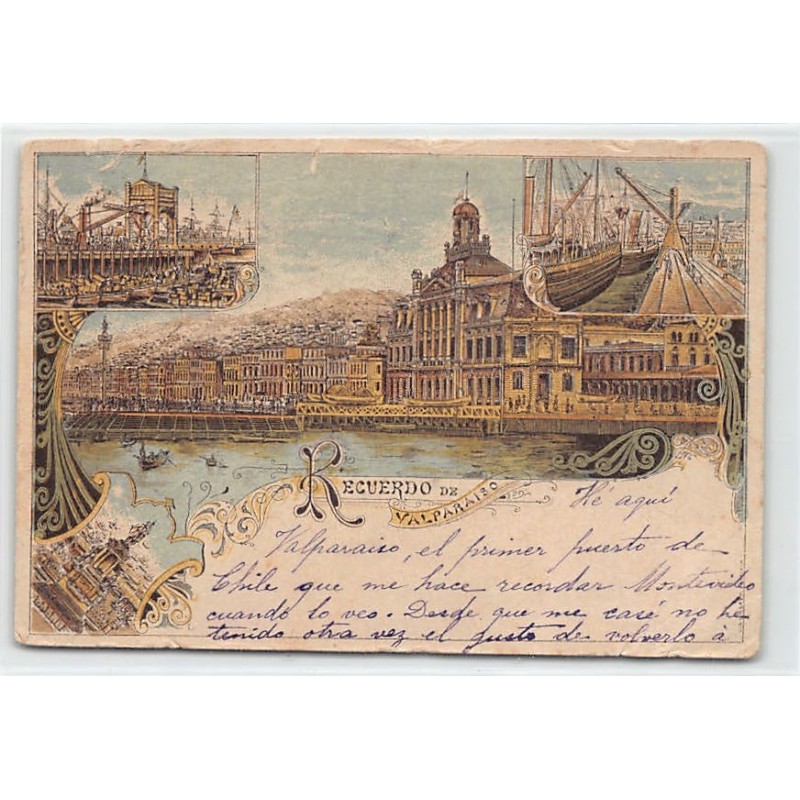 RECUERDO DE
VALPARAISO
Hé aquí
Valparaiso, el primer puerto de
Chile que me hace recordar Montevideo
cuando lo veo. Desde que me casé no he
tenido otra vez el gusto de volverlo à